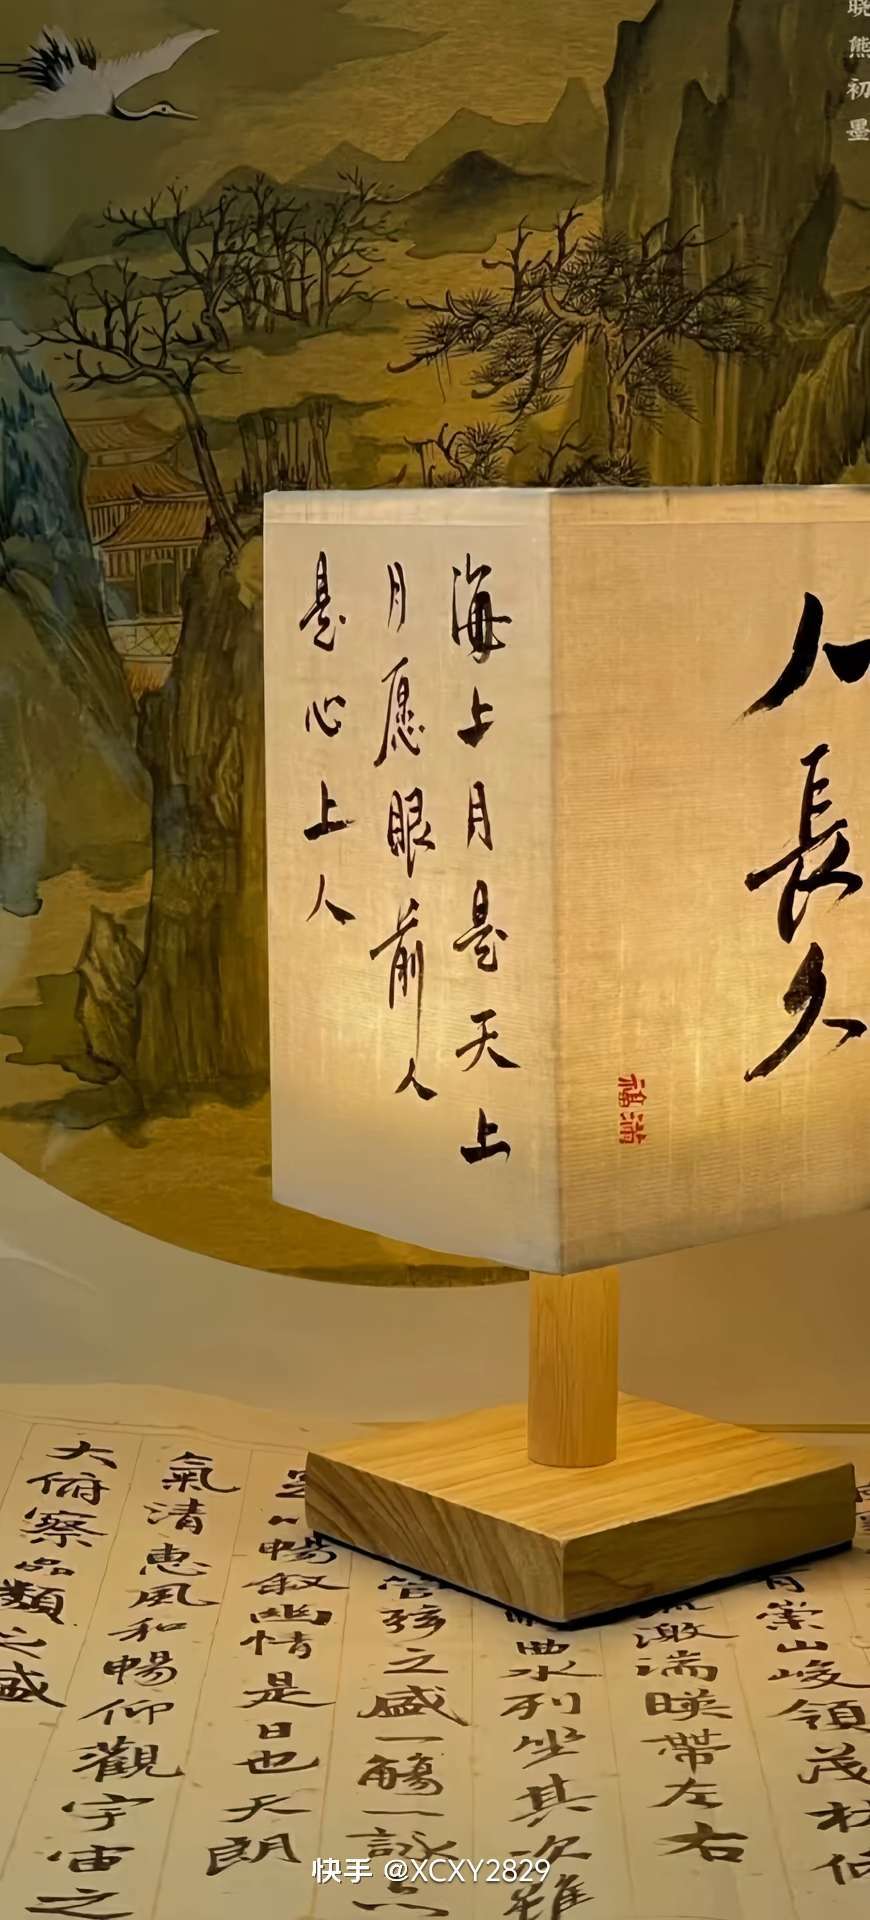 晓熊初墨
海上月是天上
月愿眼前人
是心上人
人長久
福满
崇山峻領茂林
激湍暎帶左右
曲水列坐其次雖
管弦之盛一觴一詠
以暢叙幽情是日也天朗
氣清惠風和暢仰觀宇宙之
大俯察品類之盛
快手 @XCXY2829